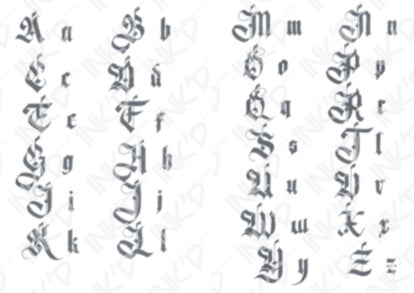 A a B b
C c D d
E e F f
G g H h
I i J j
K k L l
M m N n
O o P p
Q q R r
S s T t
U u V v
W w X x
Y y Z z
INK'D